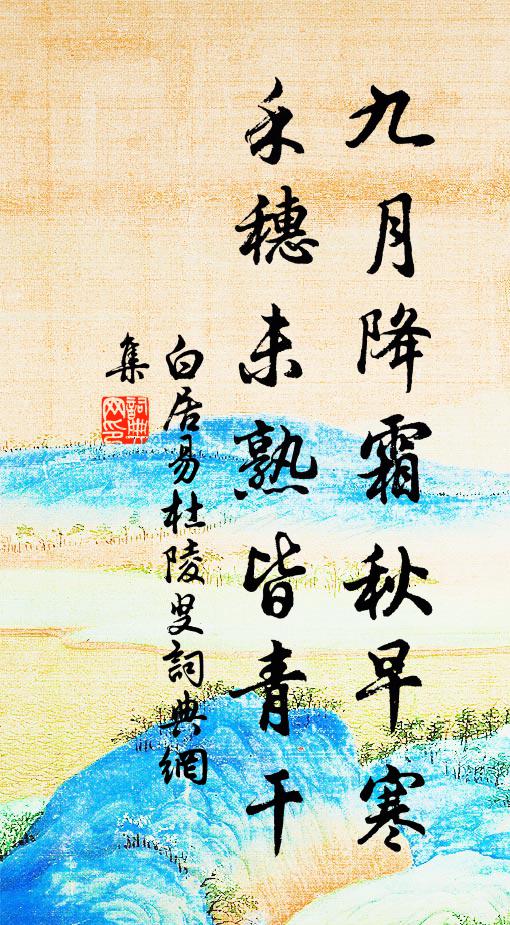 九月降霜秋早寒
禾穗未熟皆青干
白居易杜陵叟詞典網
集
詞典
网印